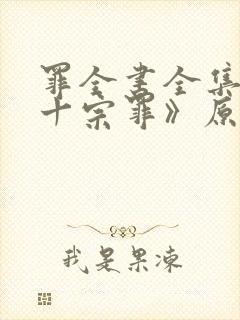 罪全书全集
十宗罪》原
我是果冻